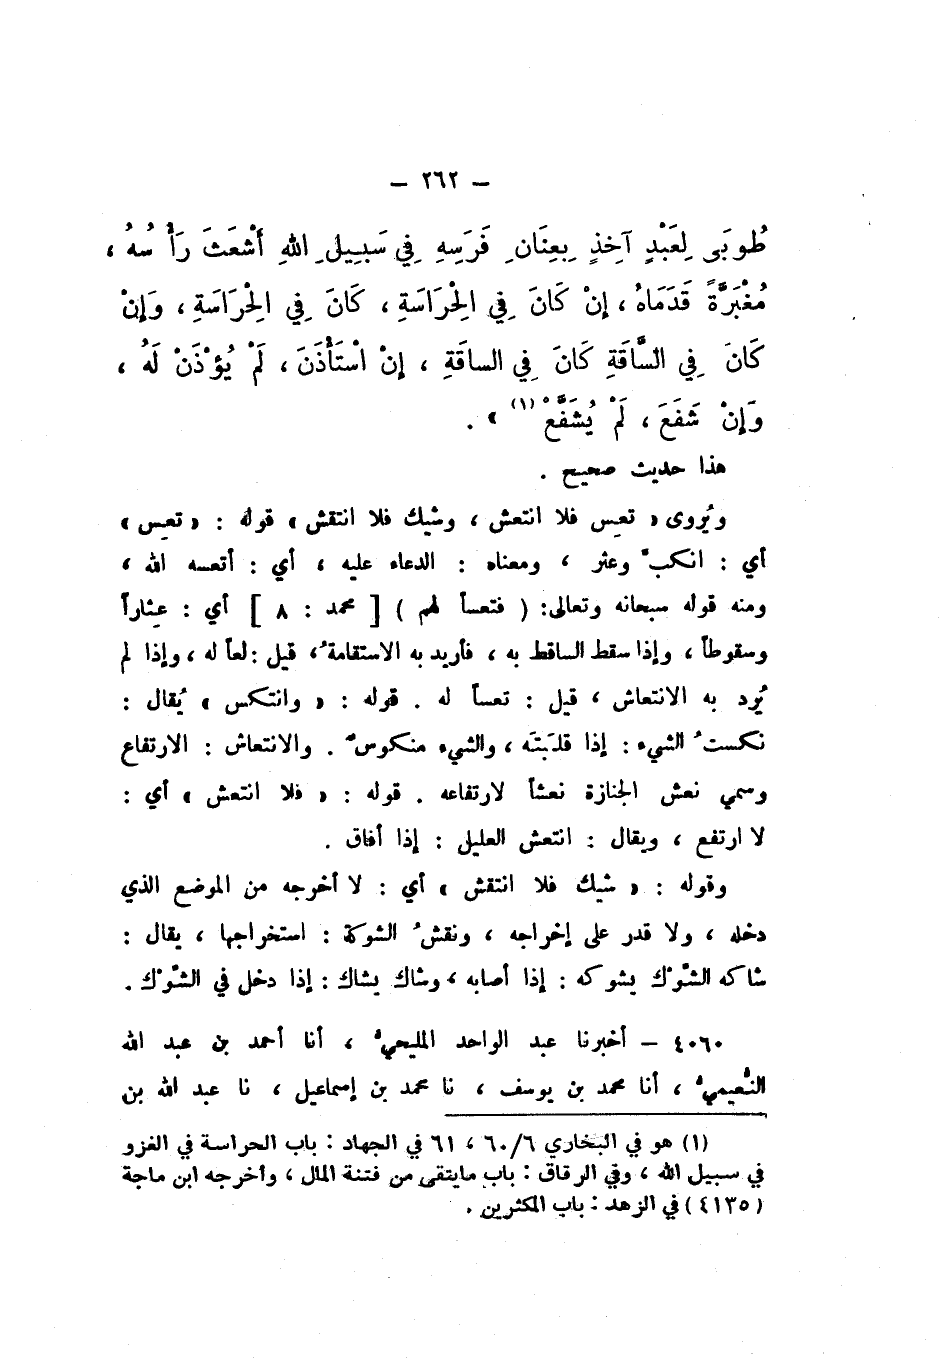 – ٢٦٢ –
طُوبَى لِعَبْدٍ آخِذٍ بِعِنَانِ فَرَسِهِ فِي سَبِيلِ اللهِ أَشْعَثَ رَأْسُهُ ،
مُغْبَرَّةً قَدَمَاهُ ، إِنْ كَانَ فِي الْحَرَاسَةِ ، كَانَ فِي الْحَرَاسَةِ ، وَإِنْ
كَانَ فِي السَّاقَةِ كَانَ فِي الساقَةِ ، إِنْ اسْتَأْذَنَ ، لَمْ يُؤْذَنْ لَهُ ،
وَإِنْ شَفَعَ ، لَمْ يُشَفَّعْ (١) » .
هذا حديث صحيح .
ويُروى « تعِس فلا انتعش ، وشيك فلا انتقش » قوله : « تعِس »
أي : انكبَّ وعثر ، ومعناه : الدعاء عليه ، أي : أتعسه الله ،
ومنه قوله سبحانه وتعالى: ( فتعساً لهم ) [ محمد : ٨ ] أي : عِثاراً
وسقوطاً ، وإذا سقط الساقط به ، فأريد به الاستقامةُ ، قيل : لعاً له ، وإذا لم
يُرد به الانتعاش ، قيل : تعساً له . قوله : « وانتكس » يُقال :
نكستُ الشيء : إذا قلَبتَه ، والشيء منكوسٌ . والانتعاش : الارتفاع
وسمي نعش الجنازة نعشاً لارتفاعه . قوله : « فلا انتعش » أي :
لا ارتفع ، ويقال : انتعش العليل : إذا أفاق .
وقوله : « شيك فلا انتقش » أي : لا أخرجه من الموضع الذي
دخله ، ولا قدر على إخراجه ، ونقشُ الشوكة : استخراجها ، يقال :
شاكه الشَّوْك يشوكه : إذا أصابه ، وشاك يشاك : إذا دخل في الشَّوْك .
٤٠٦٠ – أخبرنا عبد الواحد المليحيُّ ، أنا أحمد بن عبد الله
النُّعيميُّ ، أنا محمد بن يوسف ، نا محمد بن إسماعيل ، نا عبد الله بن
(١) هو في البخاري ٦٠/٦ ، ٦١ في الجهاد : باب الحراسة في الغزو
في سبيل الله ، وفي الرقاق : باب مايتقى من فتنة المال ، وأخرجه ابن ماجة
(٤١٣٥) في الزهد : باب المكثرين .